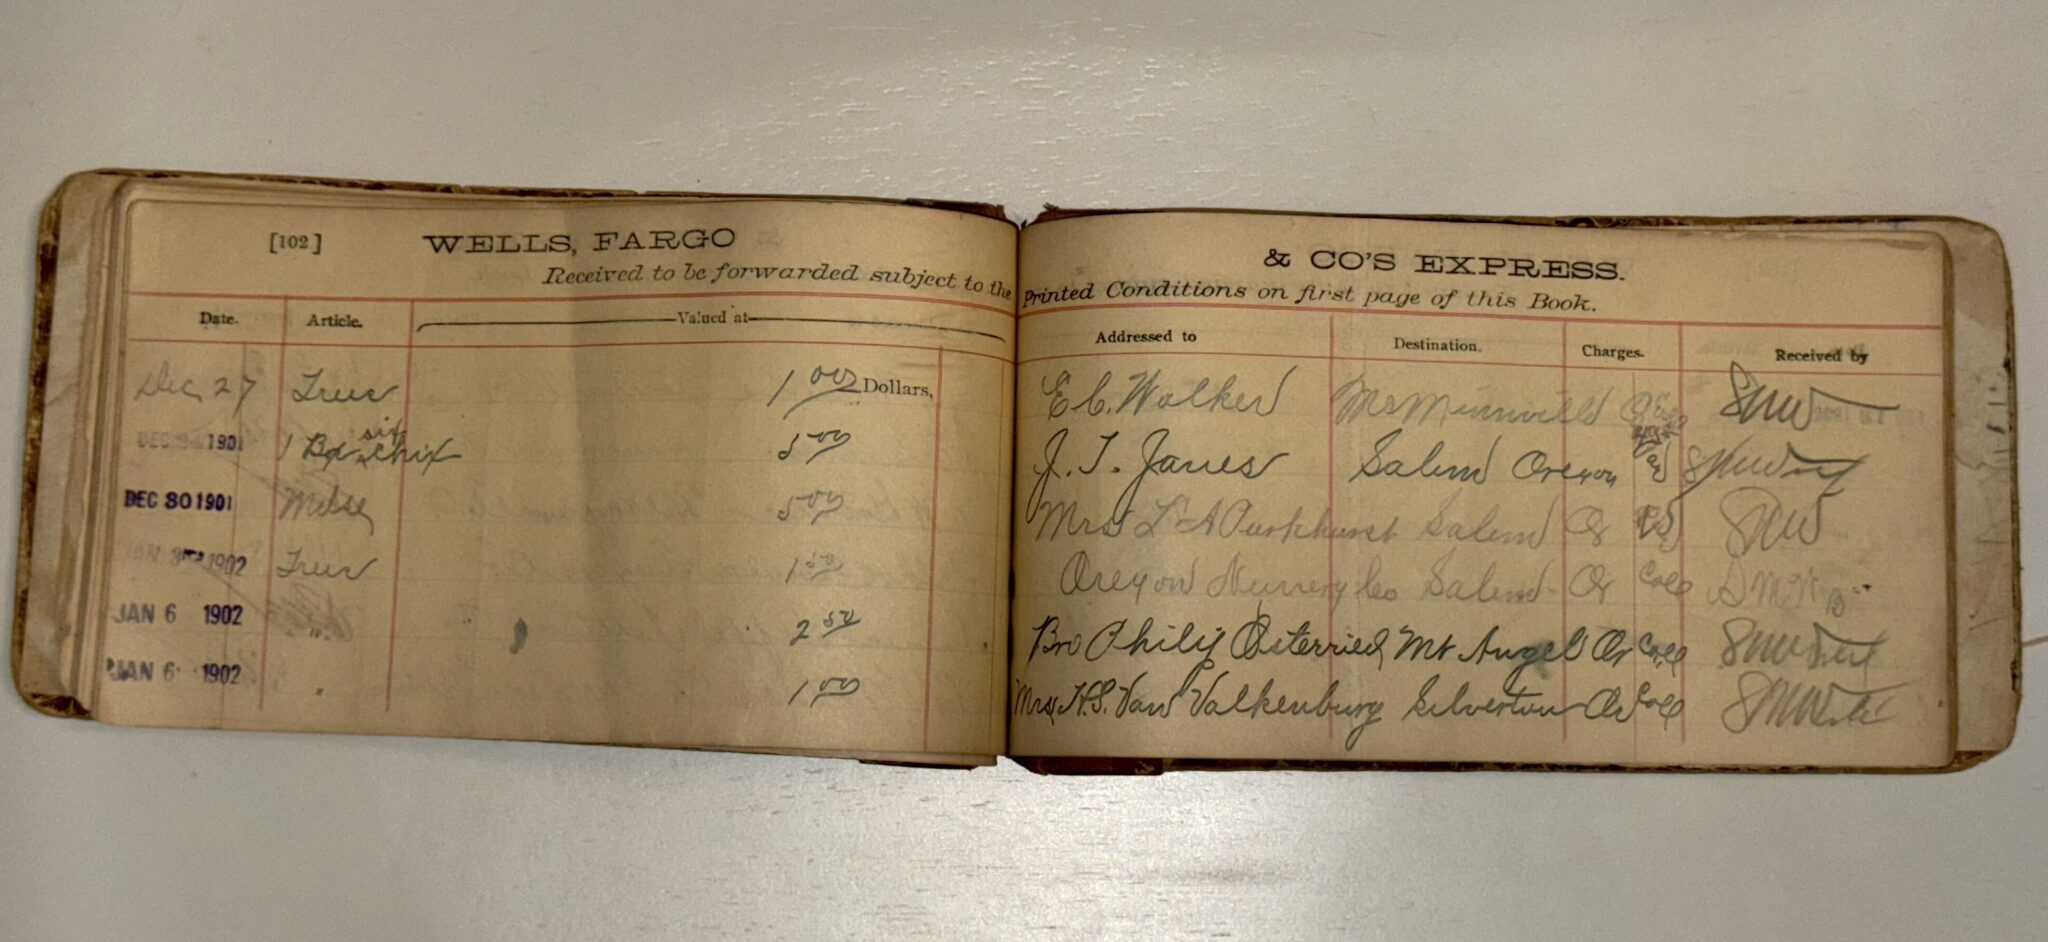 [102] WELLS, FARGO & CO'S EXPRESS.
Received to be forwarded subject to the Printed Conditions on first page of this Book.
Date. Article. Valued at Addressed to Destination. Charges. Received by
Dec 27 Trees 1 00 Dollars, E C. Walker McMinnville Coll
DEC 1901 1 Bx six chix 5 00 J. T. Janes Salem Oregon
DEC 30 1901 5 00 Mrs L A Parkhurst Salem Or
JAN 1902 Trees 1 50 Oregon Nursery Co Salem Or Coll
JAN 6 1902 " 2 50 Bro Philip Osterried Mt Angel Or Coll
JAN 6 1902 1 00 Mrs H.S. Van Valkenburg Silverton Or Coll